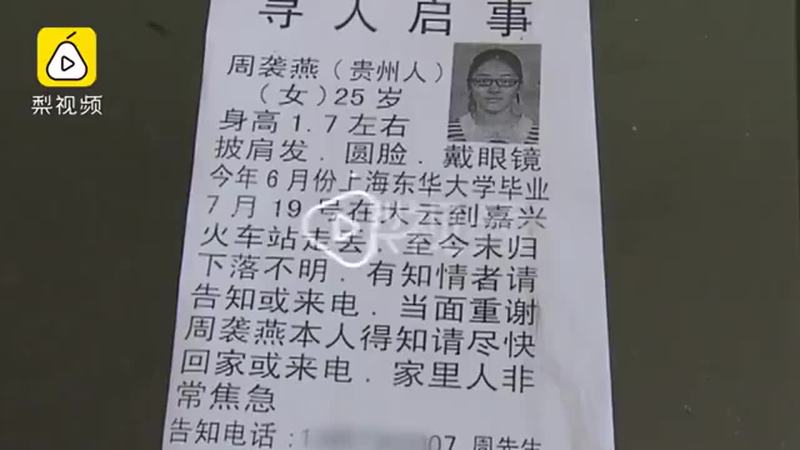 寻人启事
梨视频
周袭燕(贵州人)
(女)25岁
身高1.7左右
披肩发.圆脸.戴眼镜
今年6月份上海东华大学毕业
7月19号在大云到嘉兴
火车站走丢.至今末归
下落不明.有知情者请
告知或来电.当面重谢
周袭燕本人得知请尽快
回家或来电.家里人非
常焦急
告知电话:1 07 周先生